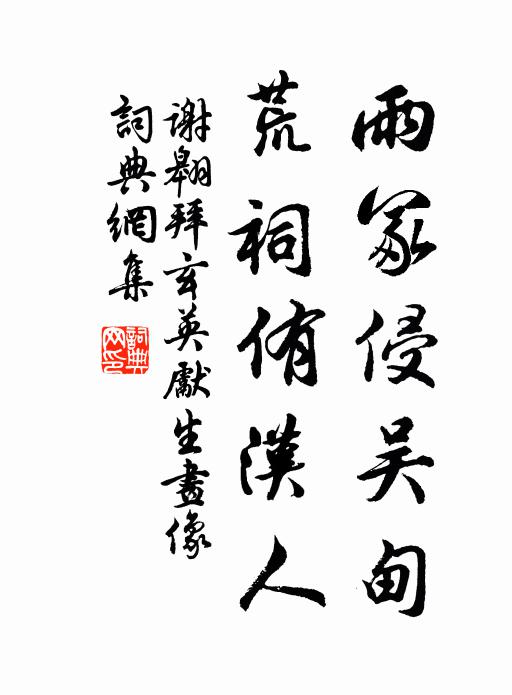 雨冢侵吴甸
荒祠侑漢人
謝翱拜玄英獻生畫像
詞典網集
詞典网印